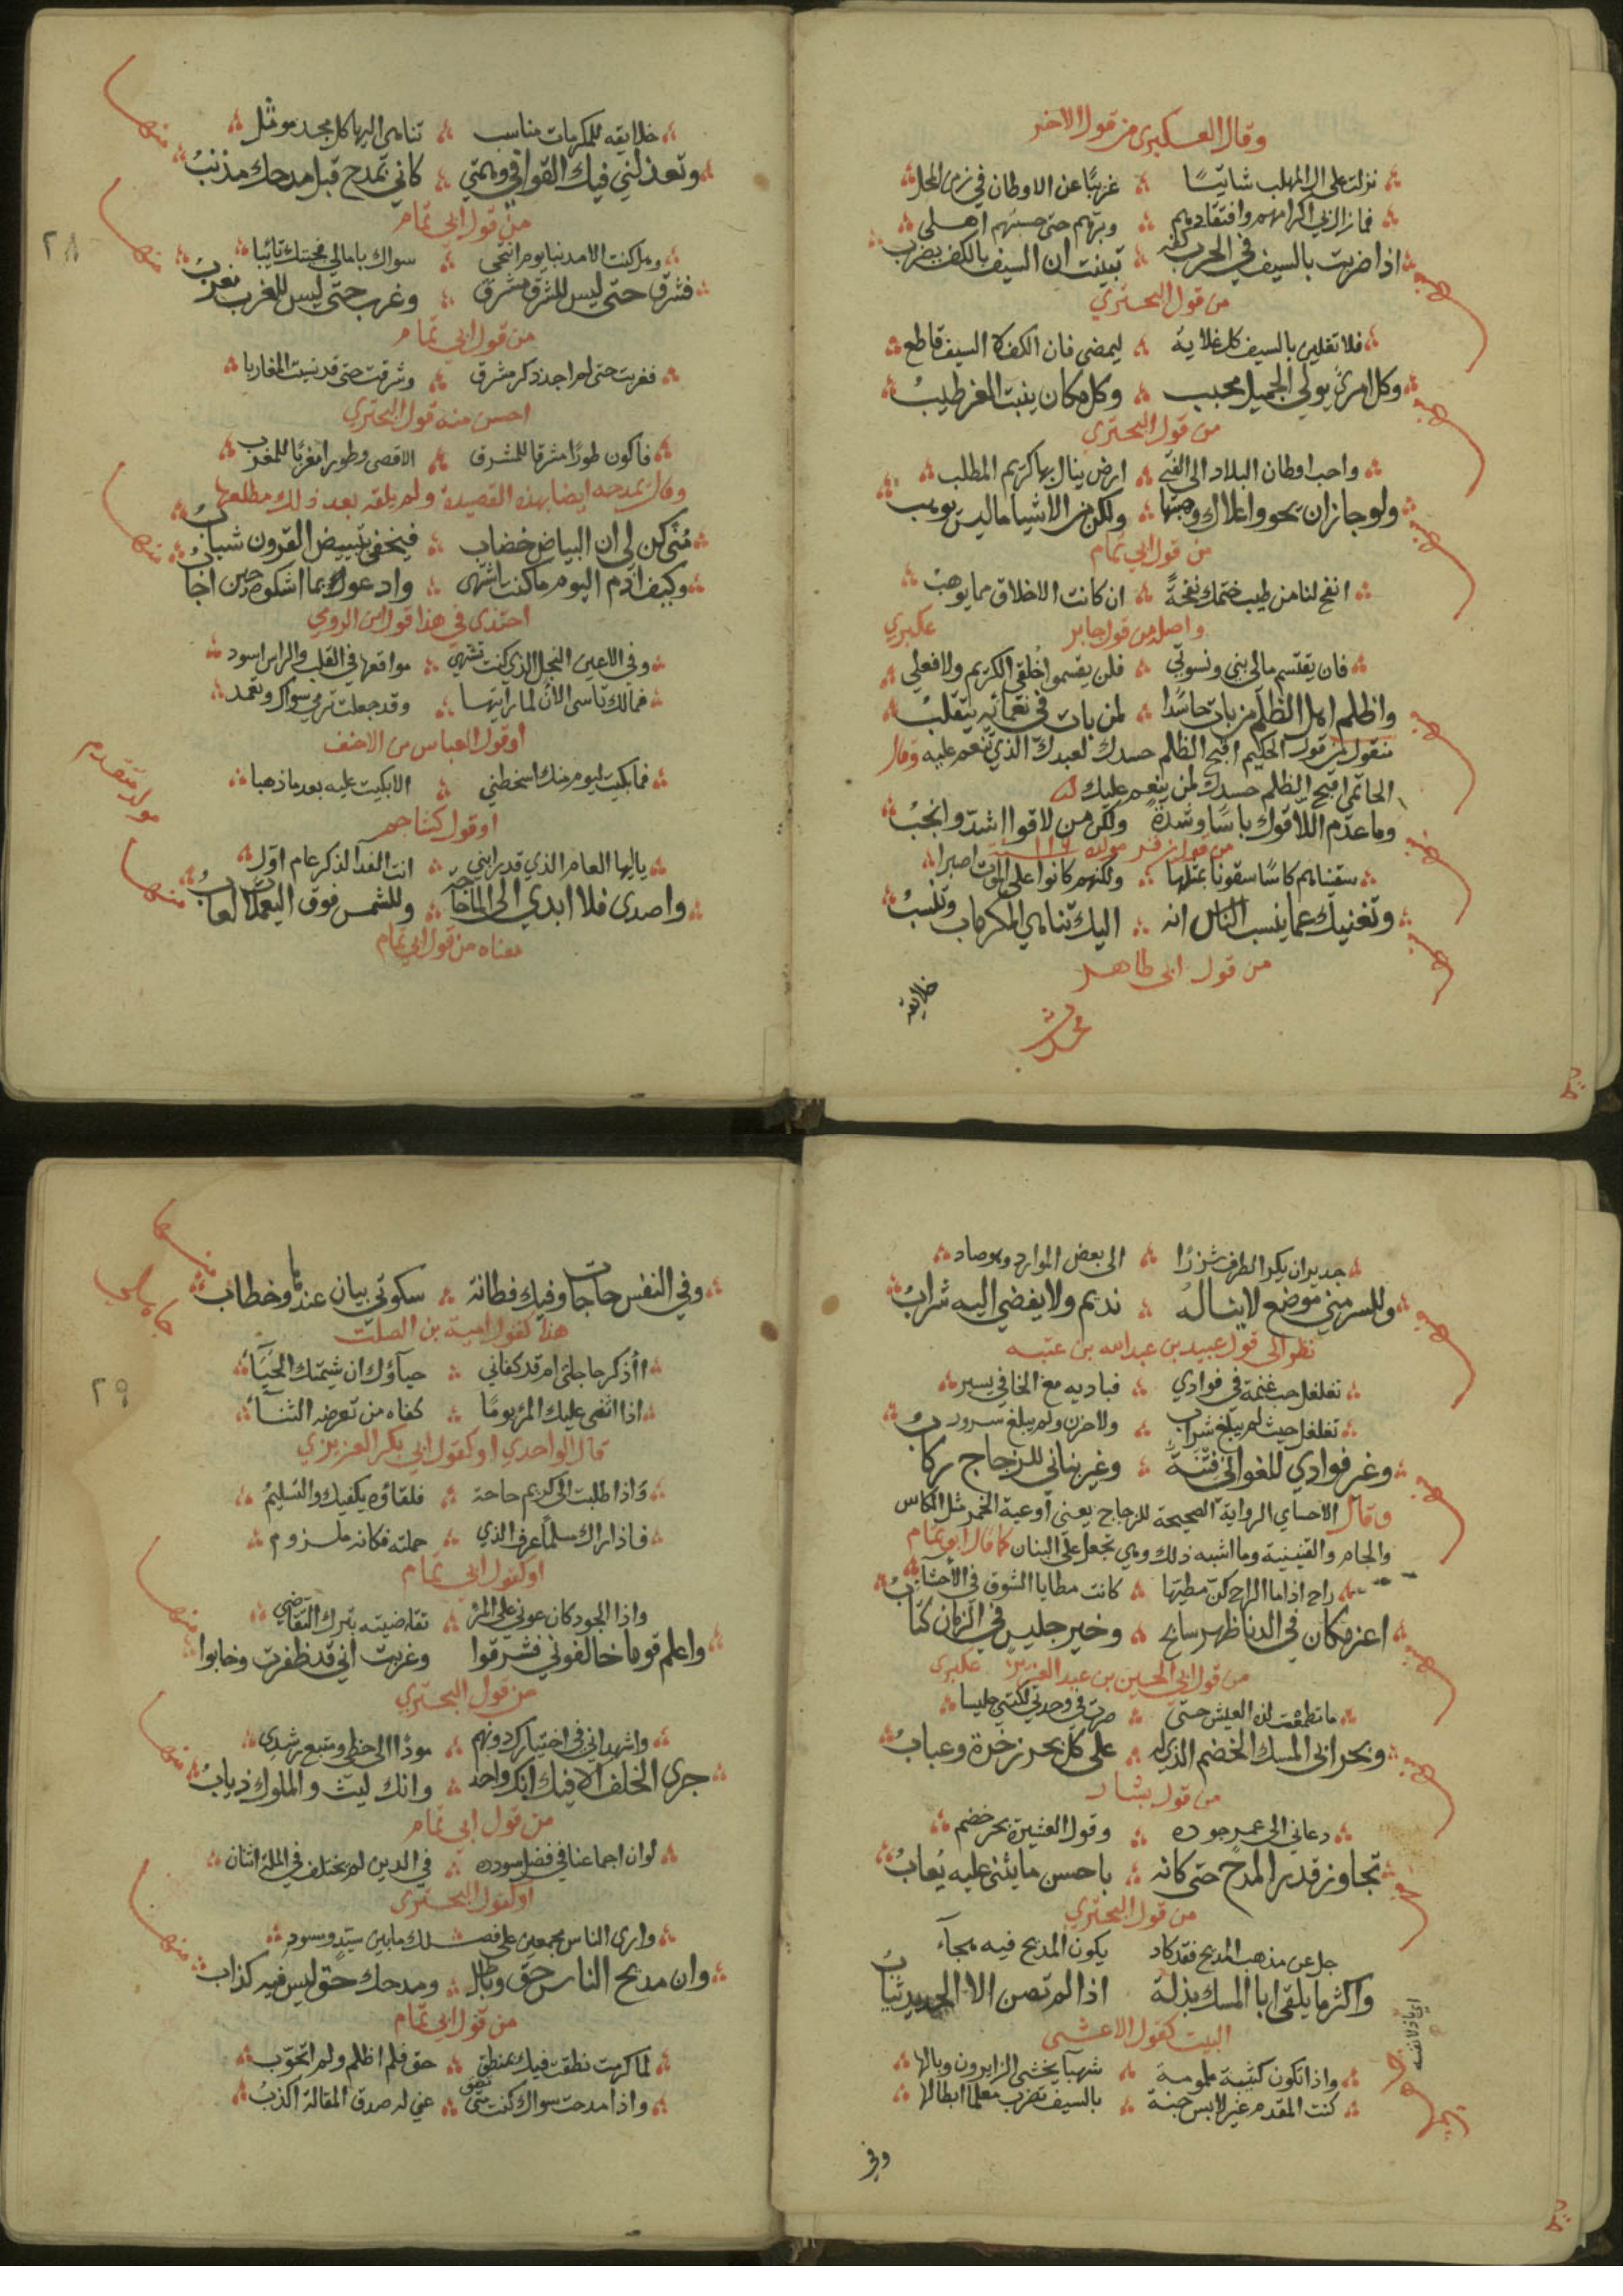 وقال العسكبرى من قول الاخر
نزلت على ال المهلب شاتيًا ۞ غريبًا عن الاوطان في زمن المحل
فما زال بي اكرامهم وافتقادهم ۞ وبرهم حتى حسبتهم اهلى
اذا ضربت بالسيف في الحرب كفه ۞ تبينت ان السيف بالكف يضرب
من قول البحتري
فلا تغلين بالسيف كل غلايه ۞ ليمضى فان الكف لا السيف قاطع
وكل امرئ يولي الجميل محبب ۞ وكل مكان ينبت العز طيبُ
من قول البحترى
واحب اوطان البلاد الى الفتى ۞ ارض ينال بها كريم المطلب
ولو جاز ان يحووا علاك وهبتها ۞ ولكن من الاشيا ما ليس يوهب
من قول ابي تمام
انفح لنا من طيب خيمك نفحةً ۞ ان كانت الاخلاق مما يوهبُ
واصله من قول جابر عكبري
فان يقتسم مالي بني ونسوتي ۞ فلن يقسموا خُلقي الكريم ولا فعلي
واظلم اهل الظلم من بات حاسدًا ۞ لمن بات في نعمائه يتقلبُ
منقول من قول الحكيم اقبح الظلم حسدك لعبدك الذي تنعم عليه وقال
الحاتمى اقبح الظلم حسدك لمن ينعم عليك
وما عدم اللاقوك باسًا وشدةً ولكن من لاقوا اشد وانجبُ
من قول زفر
سقيناهم كاسًا سقونا بمثلها ۞ ولكنهم كانوا على الموت اصبرا
وتغنيك عما ينسب الناس انه ۞ اليك تناهى المكرمات وتنسبُ
من قول ابى طاهر
خلايقه
خلايقه للمكرمات مناسب ۞ تناهى اليها كل مجد موثل
منها
وتعذلني فيك القوافي وهمتي ۞ كاني بمدح قبل مدحك مذنبُ
من قول ابي تمام
٢٨
وهل كنت الا مذنبا يوم انتحى ۞ سواك بامالي فجيتك تائبا
منها
فشرق حتى ليس للشرق مشرق ۞ وغرب حتى ليس للغرب مغربُ
من قول ابي تمام
فغربت حتى لم اجد ذكر مشرق ۞ وشرقت حتى قد نسيت المغاربا
احسن منه قول البحتري
فاكون طورًا مشرقا للمشرق ۞ الاقصى وطورا مغربًا للمغرب
وقال يمدحه ايضا بهذه القصيدة ولم يلقه بعد ذلك مطلعها
منًى كن لي ان البياض خضاب ۞ فيخفى بتبييض القرون شبابُ
منها
وكيف اذم اليوم ما كنت اشتهى ۞ وادعو بما اشكوه حين اجابُ
احتذى في هذا قول ابن الرومي
وفي الاعين النجل الذي كنت تشتهي ۞ مواقعها في القلب والراس اسود
فمالك تاسى الان لما رايتها ۞ وقد جعلت ترمي سواك وتعمد
او قول العباس بن الاحنف
فما بكيت ليوم منك اسخطني ۞ الا بكيت عليه بعد ما ذهبا
او قول كشاجم
يا ايها العام الذي قد رابني ۞ انت الفدا لذكر عام اوّل
منها
واصدى فلا ابدي الى الما حاجة ۞ وللشمس فوق اليعملات لعابُ
معناه من قول ابي تمام
جدير ان يكر الطرف شزرًا ۞ الى بعض الموارد وهو صاد
وللسر مني موضع لا يناله ۞ نديم ولا يفضي اليه شرابُ
نظر الى قول عبيد بن عبد الله بن عتبه
تغلغل حب عثمة في فوادي ۞ فباديه مع الخافي يسير
تغلغل حيث لم يبلغ شراب ۞ ولا حزن ولم يبلغ سرور
وغير فوادي للغواني فتنَةُ ۞ وغير بناني للزجاج ركابُ
وقال الاحساي الرواية الصحيحة للزجاج يعني اوعية الخمر مثل الكاس
والجام والقنينة وما اشبه ذلك وهي تجعل على البنان كما قال ابو تمام
راح اذا ما الراح كن مطيها ۞ كانت مطايا الشوق في الاحشاء
اعز مكان في الدنا ظهر سابح ۞ وخير جليس في الزمان كتابُ
من قول ابي الحسين بن عبد العزيز عكبرى
ما تطعمت لذة العيش حتى ۞ صرت في وحدتي لكتبي جليسا
وبحر ابي المسك الخضم الذي له ۞ على كل بحر زخرة وعبابُ
من قول بشار
دعاني الى عمر جوده ۞ وقول العشيرة بحر خضم
تجاوز قدر المدح حتى كانه ۞ باحسن ما يثنى عليه يُعابُ
من قول البحتري
جل عن مذهب المديح فقد كاد يكون المديح فيه هجآء
واكثر ما يلقى ابا المسك بذلة اذا لم تصن الا الحديد ثيابُ
البيت كقول الاعشى
واذا تكون كتيبة ملمومة ۞ شهبآ يخشى الزايرون وبالها
كنت المقدم غير لابس جنة ۞ بالسيف تضرب معلما ابطالها
وفي
منها
وفي النفس حاجات وفيك فطانة ۞ سكوتي بيان عندها وخطاب
هذا كقول امية بن الصلت
أاذكر حاجتى ام قد كفاني ۞ حيآؤك ان شيمتك الحَيَآءُ
٢٩
اذا اثنى عليك المرء يومًا ۞ كفاه من تعرضه الثنآءُ
قال الواحدي او كقول ابي بكر العزيزي
واذا طلبت الى كريم حاجة ۞ فلقاؤه يكفيك والتسليمُ
فاذا راك مسلمًا عرف الذي ۞ حملته فكانه ملزوم
او كقول ابي تمام
واذا الجود كان عوني على المرء ۞ تقاضيته بترك التقاضي
منها
واعلم قوما خالفوني فشرقوا وغربت اني قد ظفرت وخابوا
من قول البحتري
واشهد اني في اختيارك دونهم ۞ مودًا الى حظي ومتبع رشدي
منها
جرى الخلف الا فيك انك واحد ۞ وانك ليث والملوك ذيابُ
من قول ابي تمام
لو ان اجماعنا في فضل سودده ۞ في الدين لم يختلف في الملة اثنان
او كقول البحتري
وارى الناس مجمعين على فضلك ما بين سيّد ومسود
منها
وان مديح الناس حق وباطل ۞ ومدحك حق ليس فيه كذاب
من قول ابي تمام
لما كرمت نطقت فيك بمنطق ۞ حق فلم اظلم ولم اتحوّب
واذا مدحت سواك كنت متى تضق ۞ عني له صدق المقالة اكذبُ